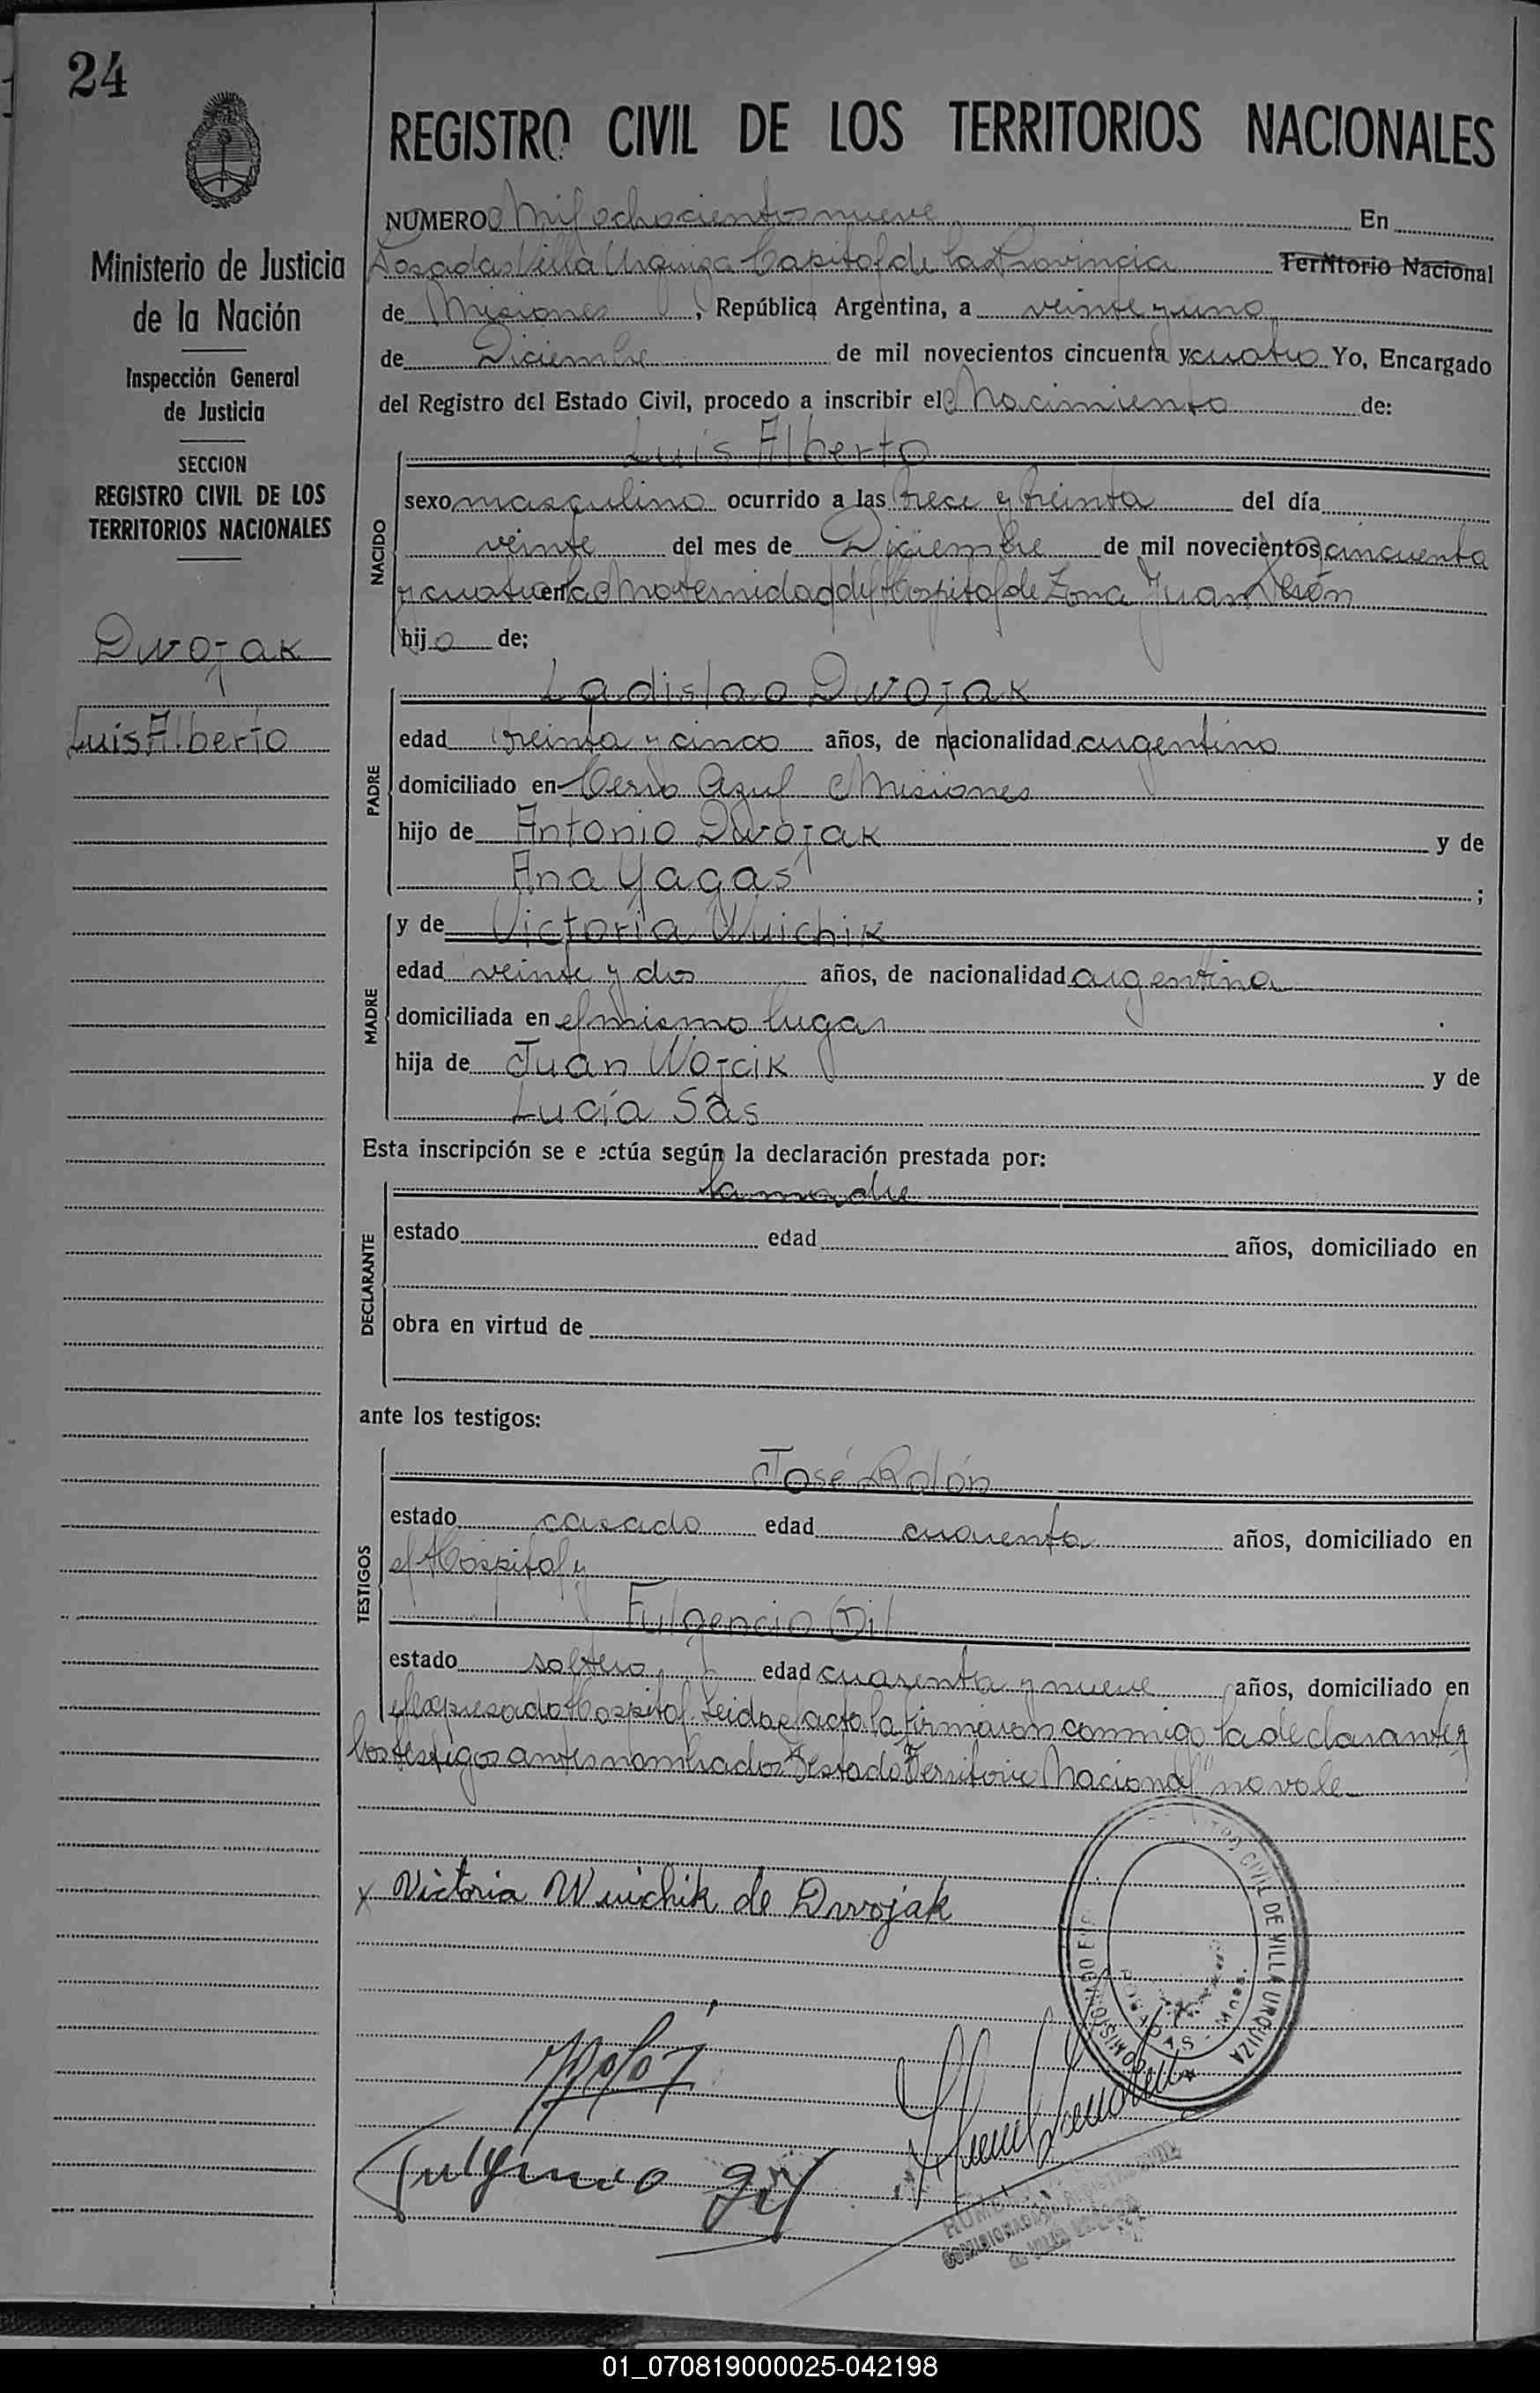 24
REGISTRO CIVIL DE LOS TERRITORIOS NACIONALES
Ministerio de Justicia
de la Nación
Inspección General
de Justicia
SECCION
REGISTRO CIVIL DE LOS
TERRITORIOS NACIONALES
Dwojak
Luis Alberto
NUMERO Mil ochocientos nueve En
Posadas Villa Urquiza Capital de la Provincia Territorio Nacional
de Misiones, República Argentina, a veinte y uno
de Diciembre de mil novecientos cincuenta y cuatro Yo, Encargado
del Registro del Estado Civil, procedo a inscribir el Nacimiento de:
NACIDO
Luis Alberto
sexo masculino ocurrido a las trece y treinta del día
veinte del mes de Diciembre de mil novecientos cincuenta
y cuatro en la Maternidad del Hospital de Zona Juan Perón
hijo de;
PADRE
Ladislao Dwojak
edad treinta y cinco años, de nacionalidad argentino
domiciliado en Cerro Azul Misiones
hijo de Antonio Dwojak y de
Ana Yagas ;
MADRE
y de Victoria Wuichik
edad veinte y dos años, de nacionalidad argentina
domiciliada en el mismo lugar
hija de Juan Wojcik y de
Lucía Sas
Esta inscripción se e ectúa según la declaración prestada por:
DECLARANTE
la madre
estado edad años, domiciliado en
obra en virtud de
ante los testigos:
TESTIGOS
José Rolón
estado casado edad cuarenta años, domiciliado en
el Hospital y
Fulgencio Gil
estado soltero, edad cuarenta y nueve años, domiciliado en
el expresado Hospital. Leida el acta la firmaron conmigo la declarante y
los testigos antes nombrados Testado "Territorio Nacional" no vale
x Victoria Wuichik de Dwojak
CIVIL DE VILLA URQUIZA
Fulgencio Gil
01_070819000025-042198